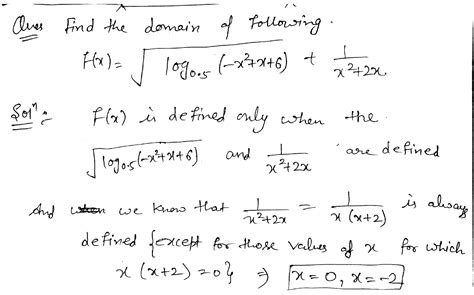 Ques Find the domain of following.
F(x) = √(log₀.₅ (-x²+x+6)) + 1/(x²+2x)
Solⁿ: F(x) is defined only when the
√(log₀.₅(-x²+x+6)) and 1/(x²+2x) are defined
And we know that 1/(x²+2x) = 1/(x(x+2)) is always
defined {except for those values of x for which
x(x+2)=0} ⇒ x=0, x=-2